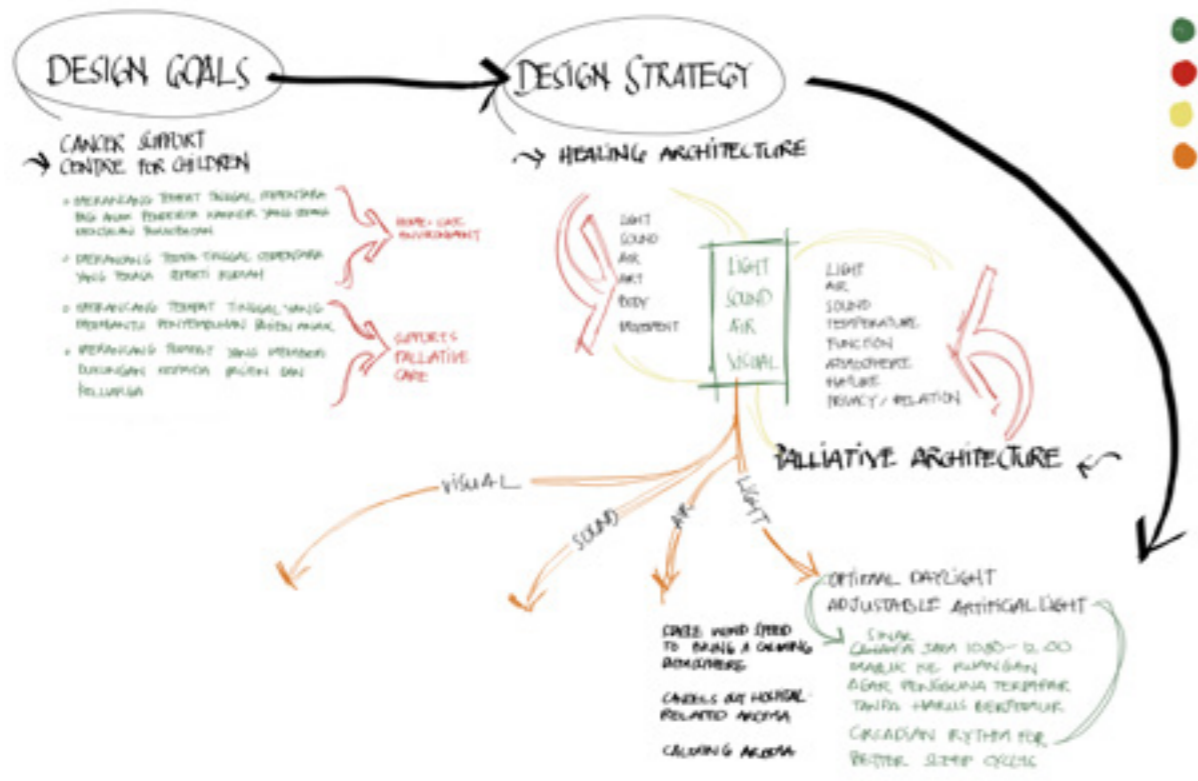 DESIGN GOALS
DESIGN STRATEGY
CANCER SUPPORT
CENTRE FOR CHILDREN
HEALING ARCHITECTURE
MERANCANG TEMPAT TINGGAL SEMENTARA
BAGI ANAK PENDERITA KANKER YANG
MERANCANG TEMPAT TINGGAL SEMENTARA
YANG TERASA SEPERTI RUMAH
MERANCANG TEMPAT TINGGAL YANG
MEMBANTU PENYEMBUHAN PASIEN ANAK
MERANCANG TEMPAT YANG MEMBERI
DUKUNGAN KEPADA PASIEN DAN
KELUARGA
HOME-LIKE
ENVIRONMENT
SUPPORTS
PALLIATIVE
CARE
LIGHT
SOUND
AIR
ART
BODY
MOVEMENT
LIGHT
SOUND
AIR
VISUAL
LIGHT
AIR
SOUND
TEMPERATURE
FUNCTION
ATMOSPHERE
NATURE
PRIVACY / RELATION
PALLIATIVE ARCHITECTURE
VISUAL
SOUND
AIR
LIGHT
STABLE WIND SPEED
TO BRING A CALMING
ATMOSPHERE
CANCELS OUT HOSPITAL-
RELATED AROMA
CALMING AROMA
OPTIMAL DAYLIGHT
ADJUSTABLE ARTIFICAL LIGHT
SINAR
JAM 10.00-12.00
MASUK KE RUANGAN
AGAR PENGGUNA TERPAPAR
TANPA HARUS BERJEMUR
CIRCADIAN RYTHM FOR
BETTER SLEEP CYCLES